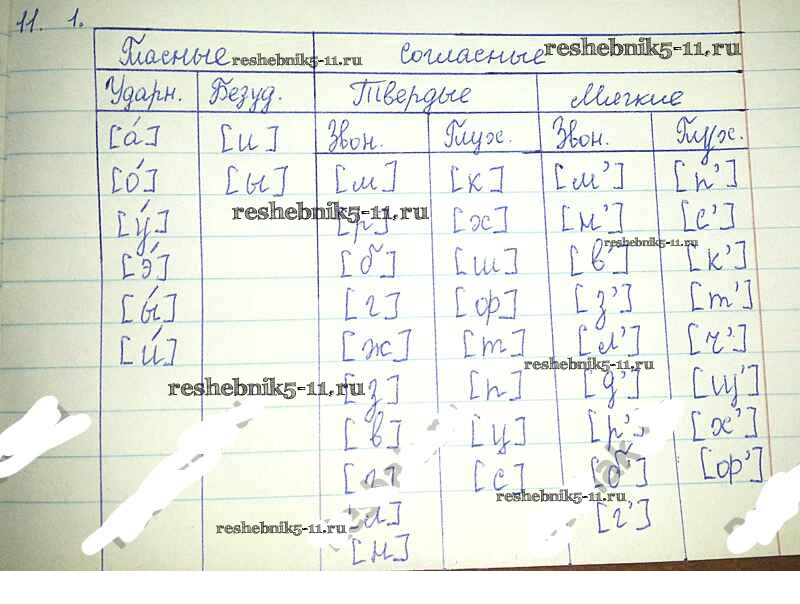 11. 1.
Гласные Согласные
reshebnik5-11.ru reshebnik5-11.ru
Ударн. Безуд. Твердые Мягкие
[а́] [и] Звон. Глух. Звон. Глух.
[о́] [ы] [м] [к] [м'] [п']
reshebnik5-11.ru
[у́] [р] [х] [н'] [с']
reshebnik5-11.ru
[э́] [б] [ш] [в'] [к']
[ы́] [г] [ф] [з'] [т']
[и́] [ж] [т] [л'] [ч']
reshebnik5-11.ru
reshebnik5-11.ru
[з] [п] [д'] [щ']
[в] [ц] [р'] [х']
[с] [б'] [ф']
reshebnik5-11.ru
reshebnik5-11.ru
[л] [г']
[н]